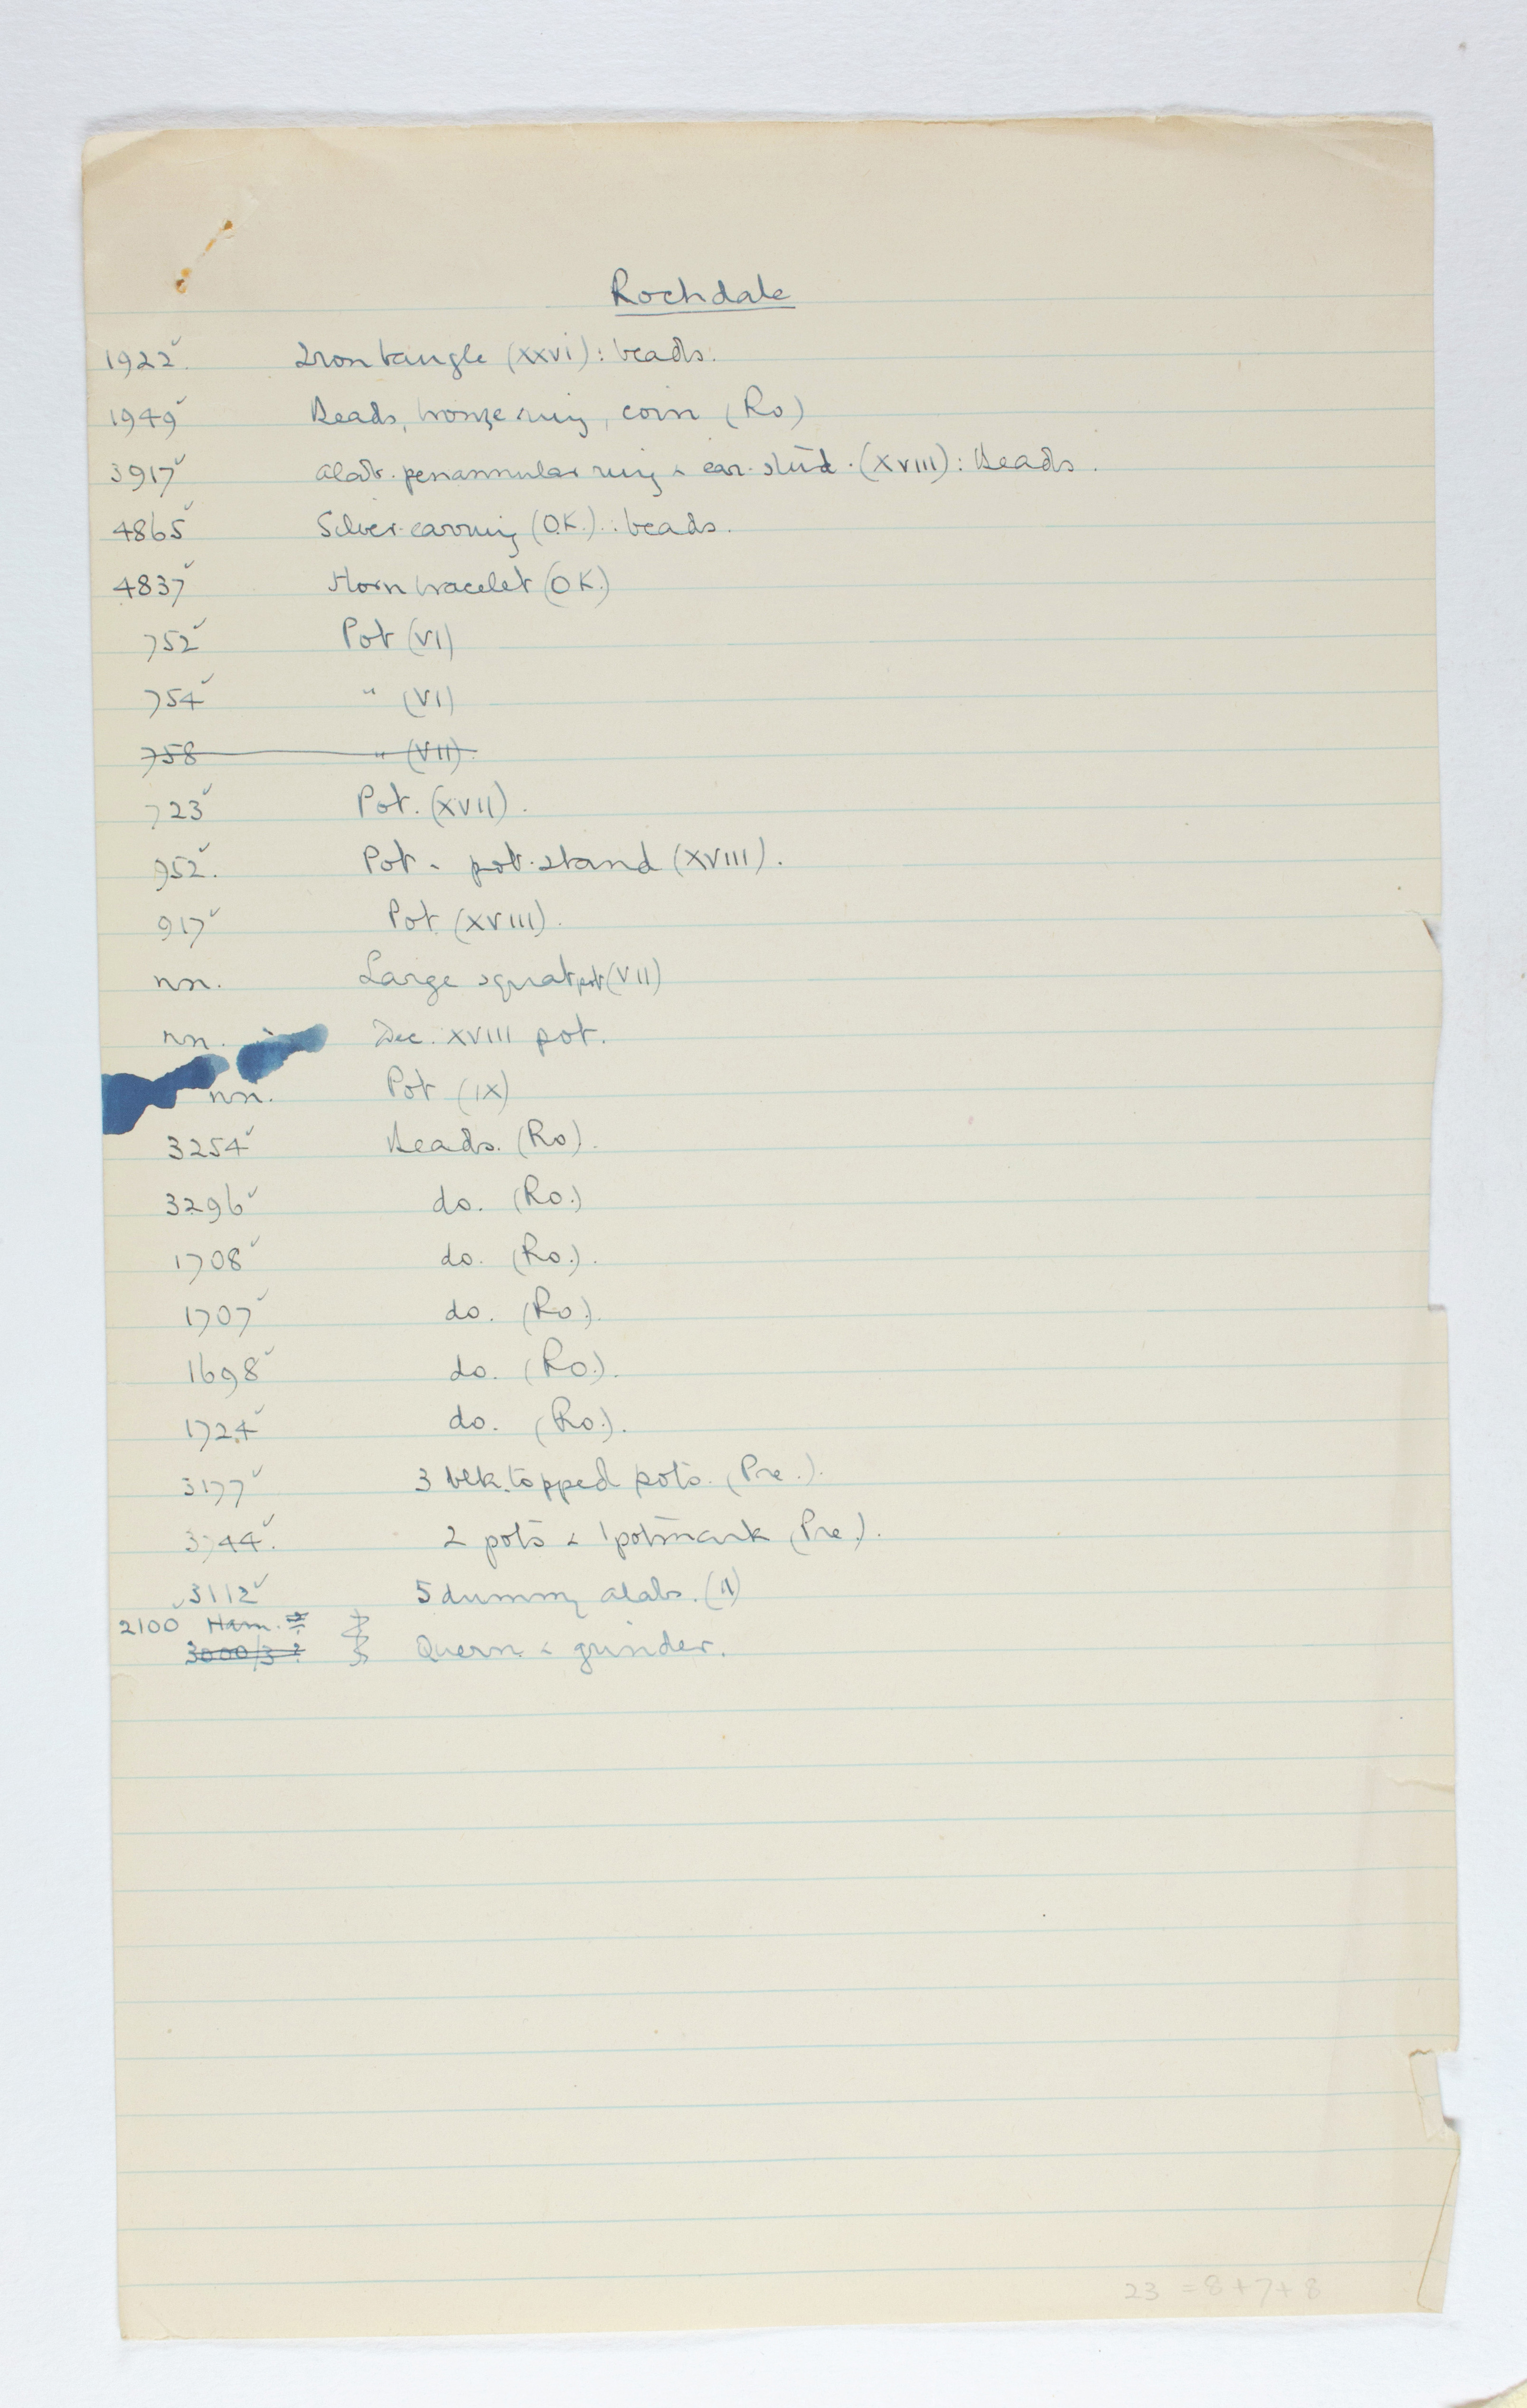 Rochdale
1922 ✓ Iron bangle (XXVI) : beads.
1949 ✓ Beads, bronze ring, coin (Ro)
3917 ✓ Alab. penannular ring & ear-stud. (XVIII) : Beads.
4865 ✓ Silver earring (O.K.) : beads.
4837 ✓ Horn bracelet (O K.)
752 ✓ Pot (VI)
754 ✓ " (VI)
758 " (VII).
723 ✓ Pot. (XVII).
952. ✓ Pot & pot-stand (XVIII).
917 ✓ Pot (XVIII).
nn. Large squat pot (VII)
nn. Dec. XVIII pot.
nn. Pot (IX)
3254 ✓ Beads. (Ro).
3296 ✓ do. (Ro.)
1708 ✓ do. (Ro.).
1707 ✓ do. (Ro.).
1698 ✓ do. (Ro.).
1724 ✓ do. (Ro.).
3177 ✓ 3 blk. topped pots. (Pre.).
3744. ✓ 2 pots & 1 potmark (Pre.).
3112 ✓ 5 dummy alabs. (II)
2100 Ham. ?
3000/3 ? Quern & grinder.
23 = 8 + 7 + 8